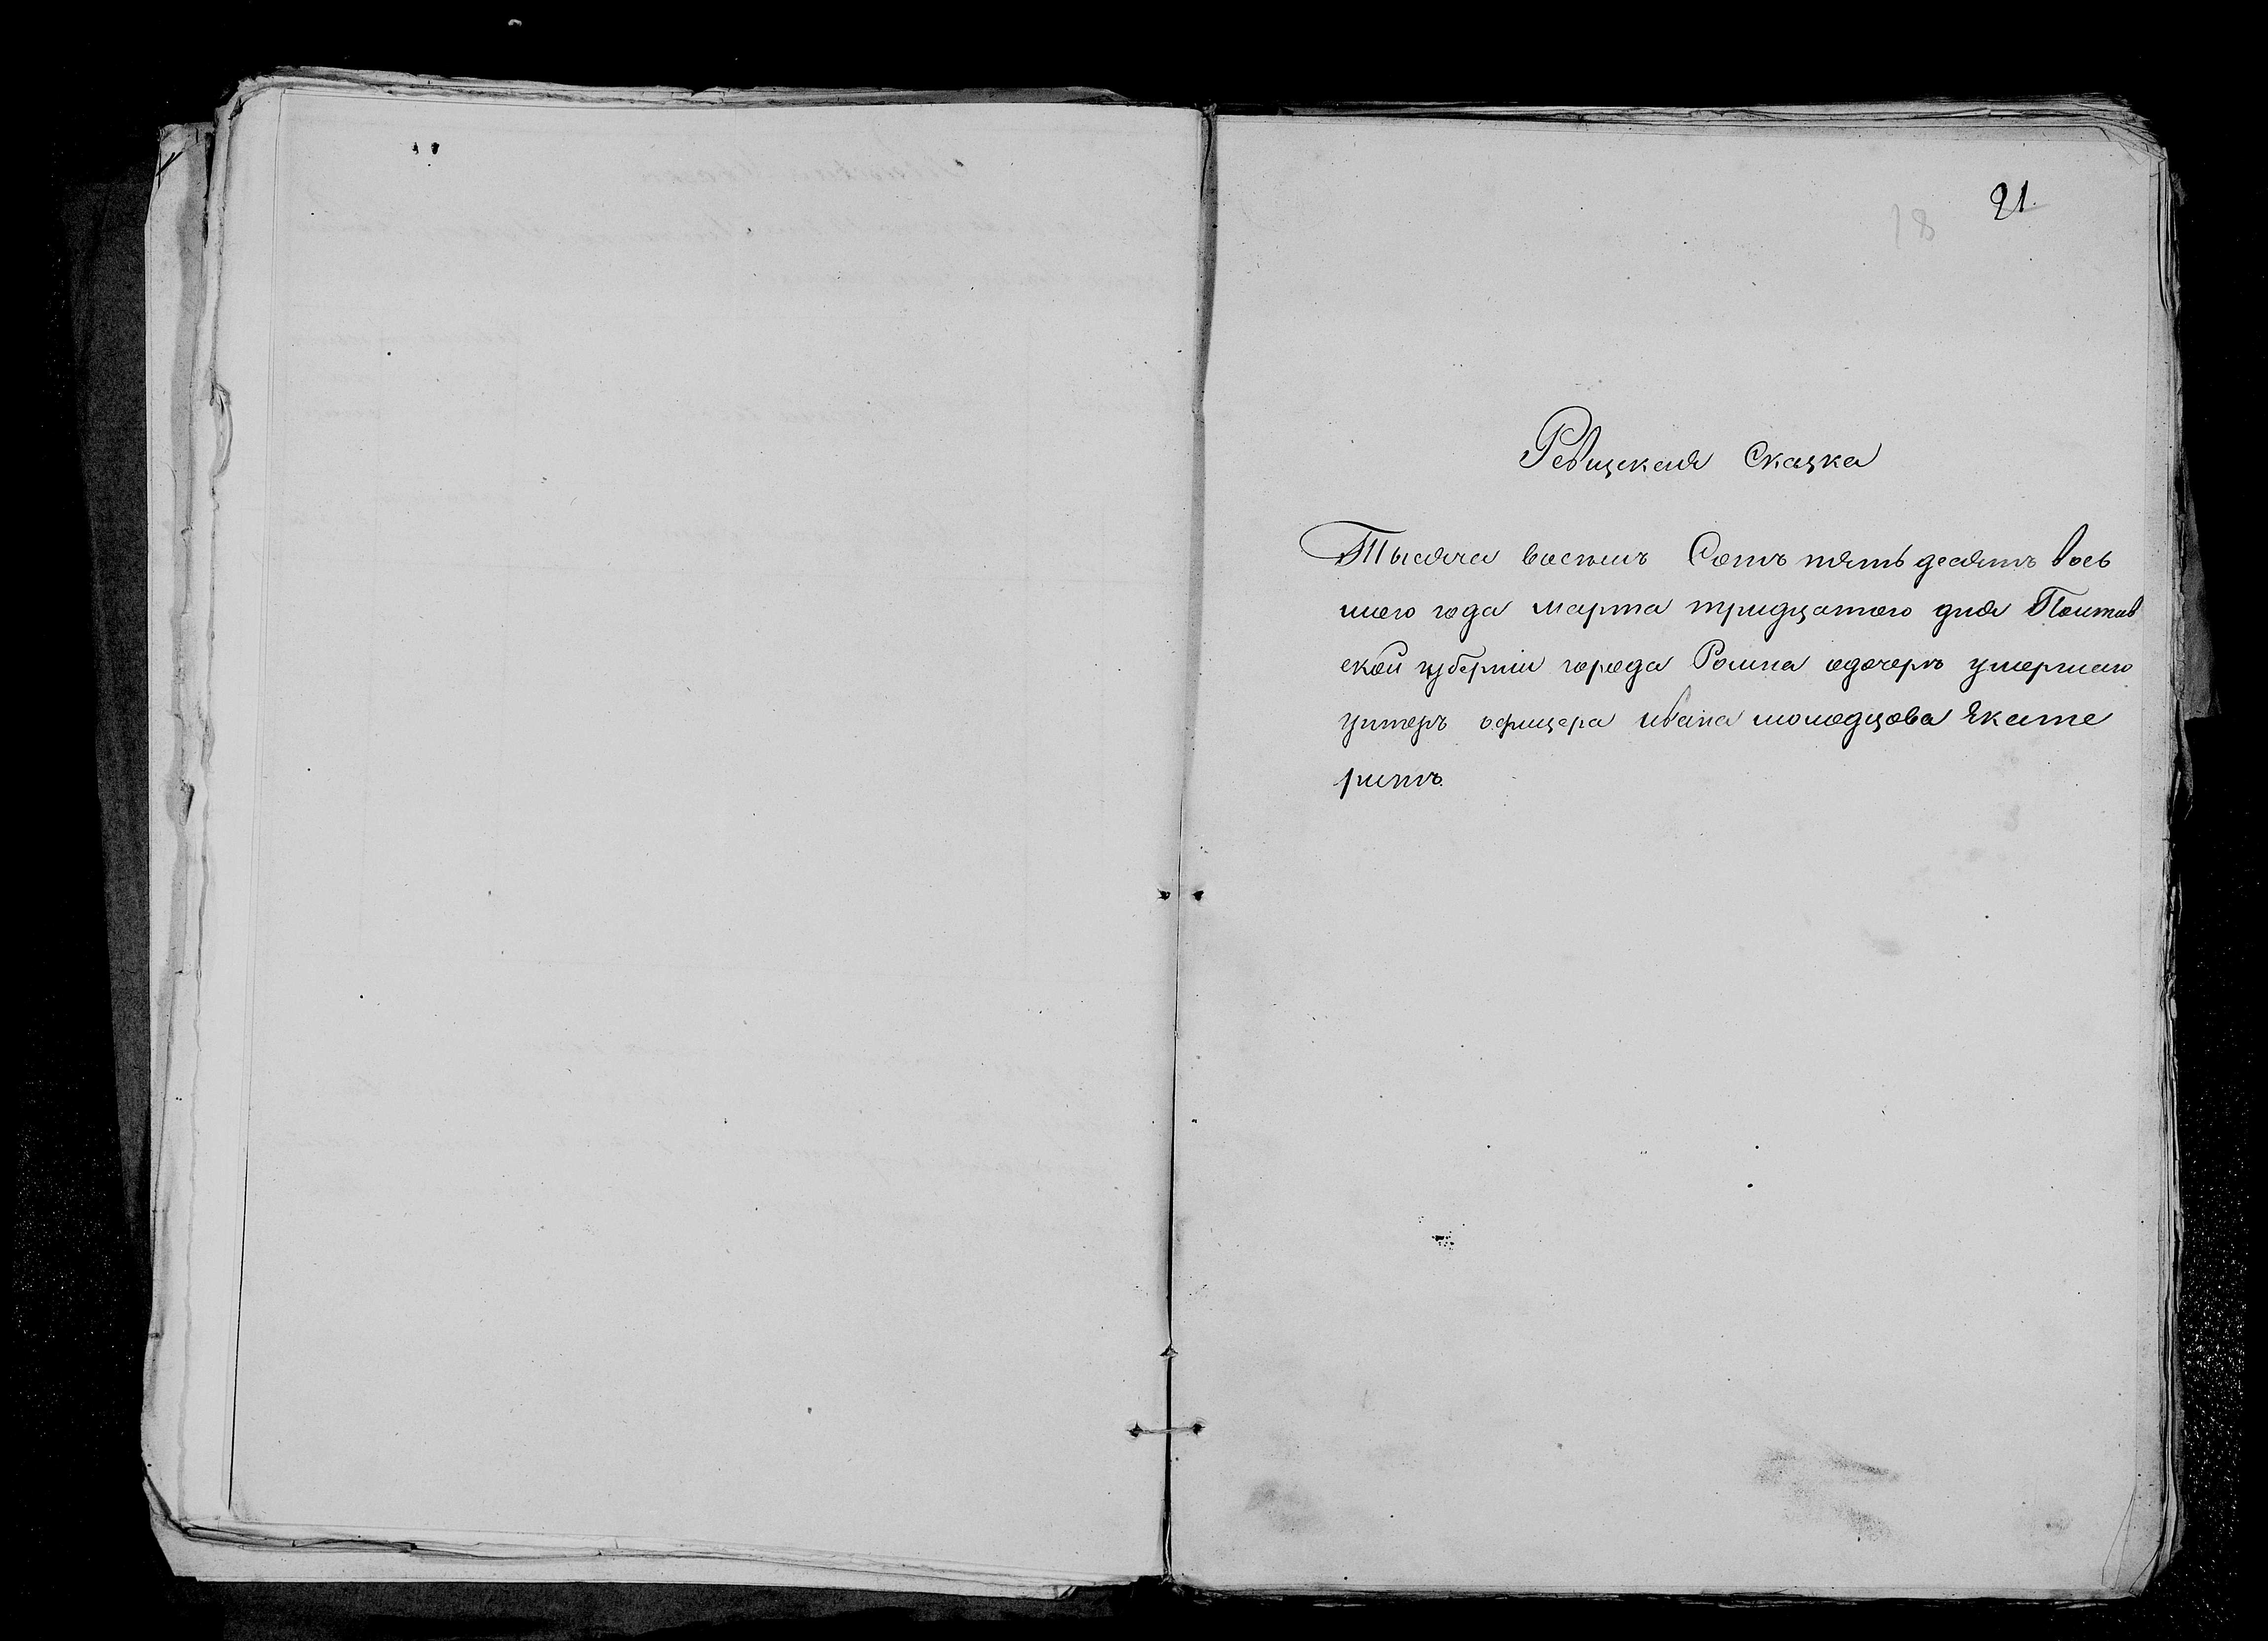 21.
18
Ревизская Сказка
Тысяча восемь Сотъ пятьдесятъ вось
мого года марта тридцатого дня Полтав
ской губерніи города Ромна одочеръ умершаго
унтеръ офицера ивана молодцова Екате
ринъ.